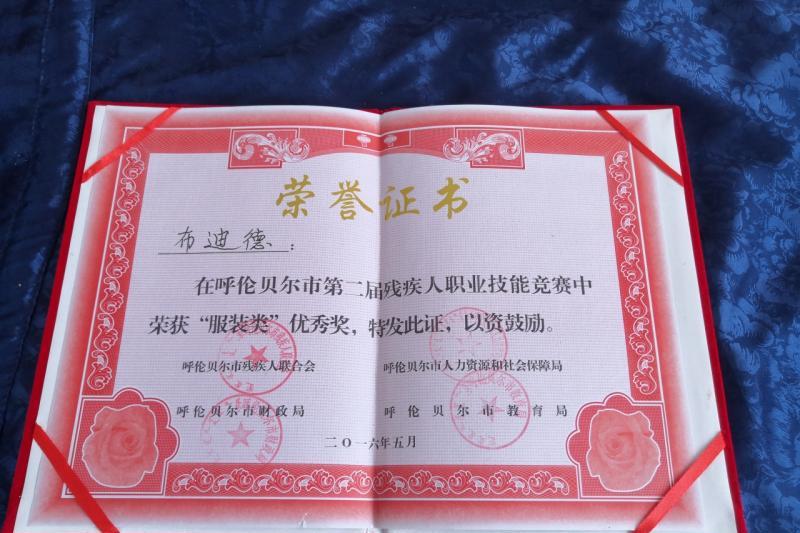 荣誉证书
布迪德：
在呼伦贝尔市第二届残疾人职业技能竞赛中
荣获“服装类”优秀奖，特发此证，以资鼓励。
呼伦贝尔市残疾人联合会 呼伦贝尔市人力资源和社会保障局
呼伦贝尔市财政局 呼伦贝尔市教育局
二〇一六年五月